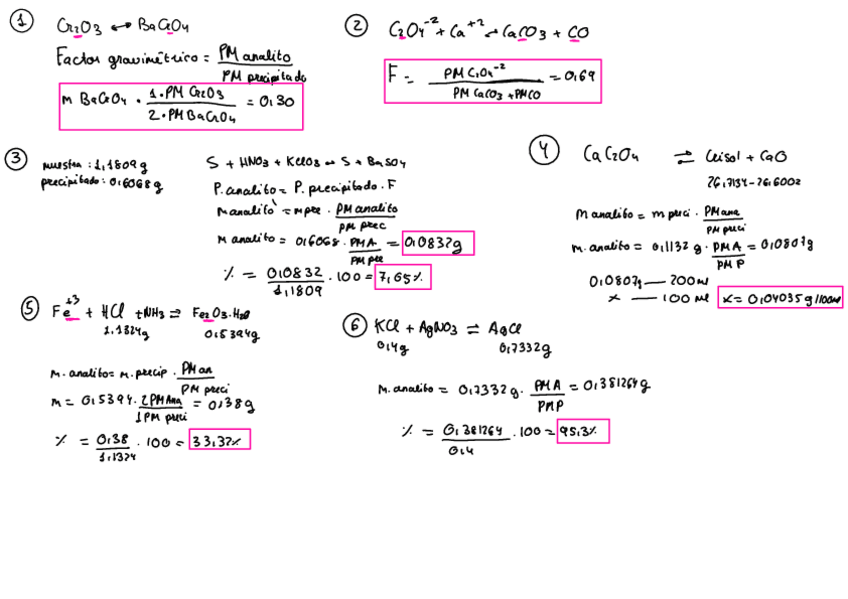 ① Cr2O3 ↔ BaCrO4
Factor gravimétrico = PM analito / PM precipitado
m BaCrO4 · 1·PM Cr2O3 / 2·PM BaCrO4 = 0,30
② C2O4⁻² + Ca⁺² → CaCO3 + CO
F = PM C2O4⁻² / PM CaCO3 + PMCO = 0,69
③ muestra: 1,1809g
precipitado: 0,6068g
S + HNO3 + KClO3 → S + BaSO4
P. analito = P. precipitado · F
m analito = m pre · PM analito / PM prec
m analito = 0,6068 · PMA / PM pre = 0,0832g
% = 0,0832 / 1,1809 · 100 = 7,05%
④ CaC2O4 ⇌ + CaO
26,7134-26,6002
m analito = m preci · PM ana / PM preci
m. analito = 0,1132 g · PMA / PMP = 0,0807g
0,0807g — 200 ml
x — 100 ml
x = 0,04035g/100ml
⑤ Fe⁺³ + HCl + NH3 ⇌ Fe2O3·H2O
1,1324g 0,5394g
m. analito = m. precip · PM an / PM preci
m = 0,5394 · 2PM Ana / 1PM preci = 0,38g
% = 0,38 / 1,1324 · 100 = 33,32%
⑥ KCl + AgNO3 ⇌ AgCl
0,4g 0,7332g
m. analito = 0,7332g · PMA / PMP = 0,381264g
% = 0,381264 / 0,4 · 100 = 95,3%